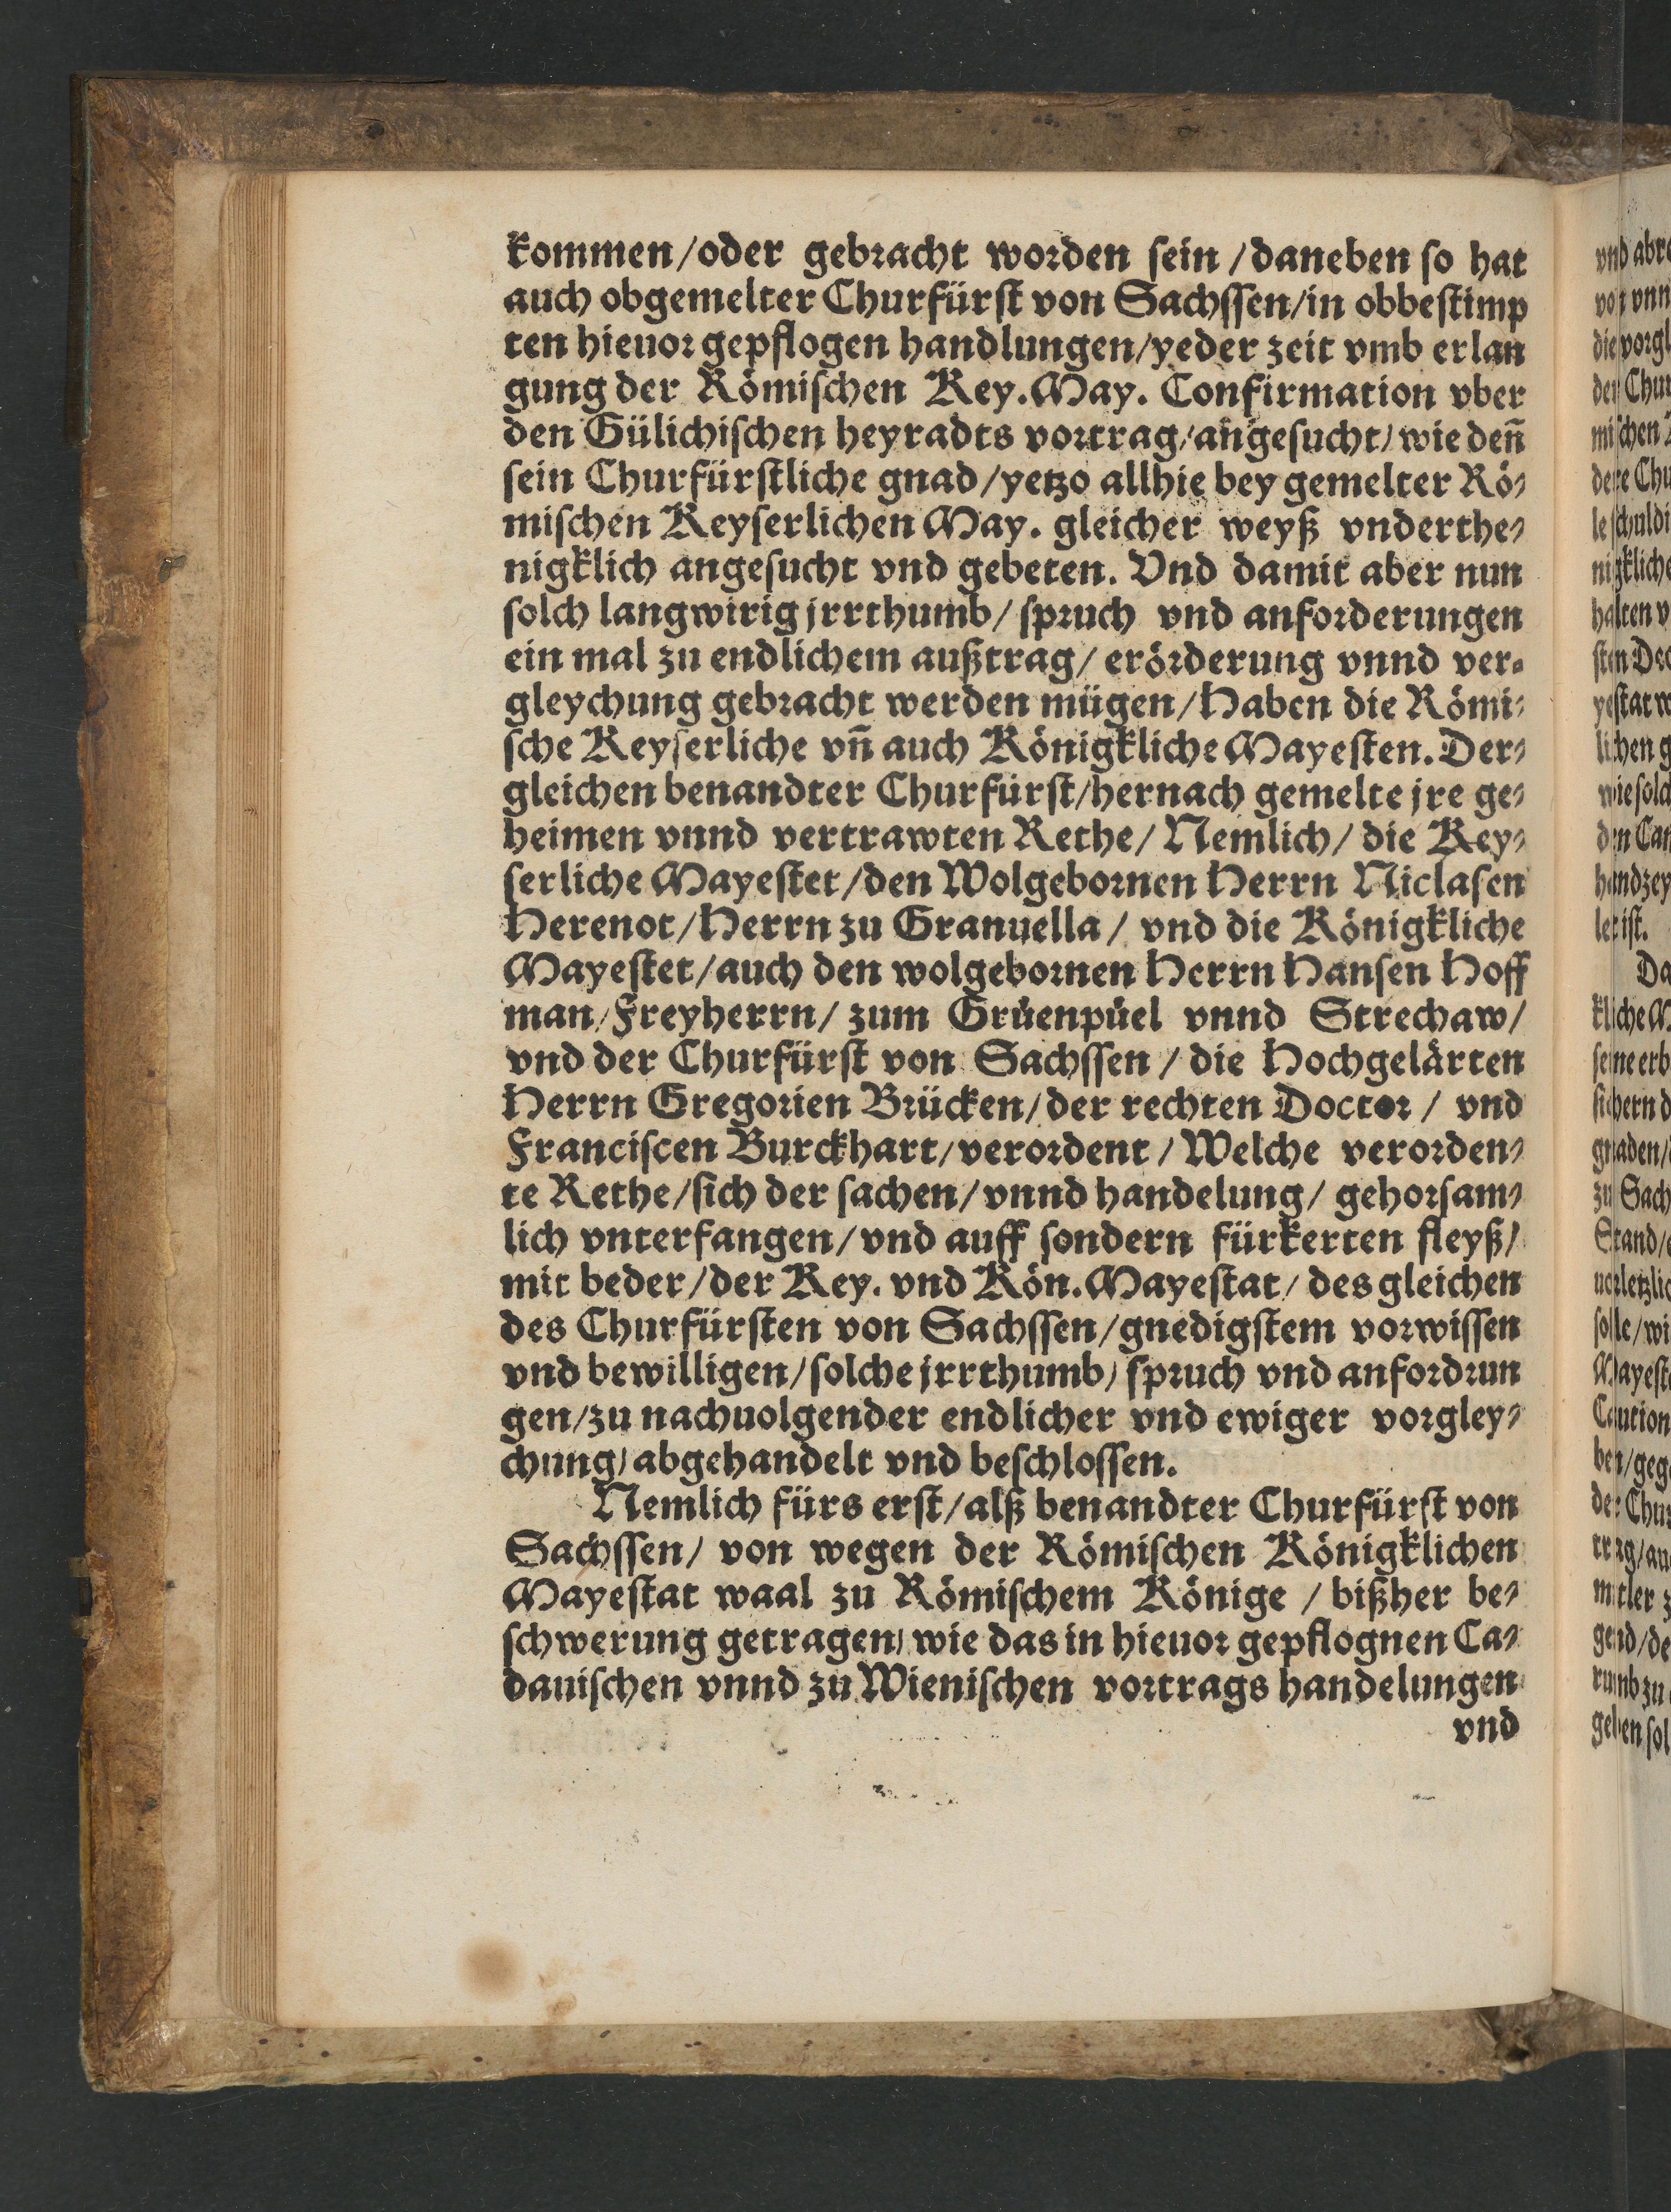 kommen/oder gebracht worden sein/daneben so hat
auch obgemelter Churfürst von Sachssen/in obbestimp
ten hieuor gepflogen handlungen/yeder zeit vmb erlan
gung der Römischen Key.May. Confirmation vber
den Gülichischen heyradts vortrag/angesucht/wie deñ
sein Churfürstliche gnad/yetzo allhie bey gemelter Rö⸗
mischen Keyserlichen May. gleicher weyß vnderthe⸗
nigklich angesucht vnd gebeten. Vnd damit aber nun
solch langwirig jrrthumb/spruch vnd anforderungen
ein mal zu endlichem außtrag/erörderung vnnd ver⸗
gleychung gebracht werden mügen/Haben die Römi⸗
sche Keyserliche vñ auch Königkliche Mayesten. Der⸗
gleichen benandter Churfürst/hernach gemelte jre ge⸗
heimen vnnd vertrawten Rethe/Nemlich/die Key⸗
serliche Mayestet/den Wolgebornen Herrn Niclasen
Herenot/Herrn zu Granuella/vnd die Königkliche
Mayestet/auch den wolgebornen Herrn Hansen Hoff
man/Freyherrn/zum Grůenpůel vnnd Strechaw/
vnd der Churfürst von Sachssen/die Hochgelärten
Herrn Gregorien Brücken/der rechten Doctor/vnd
Franciscen Burckhart/verordent/Welche verorden⸗
te Rethe/sich der sachen/vnnd handelung/gehorsam⸗
lich vnterfangen/vnd auff sondern fürkerten fleyß/
mit beder/der Key. vnd Kön.Mayestat/des gleichen
des Churfürsten von Sachssen/gnedigstem vorwissen
vnd bewilligen/solche jrrthumb/spruch vnd anfordrun
gen/zu nachuolgender endlicher vnd ewiger vorgley⸗
chung/abgehandelt vnd beschlossen.
Nemlich fürs erst/alß benandter Churfürst von
Sachssen/von wegen der Römischen Königklichen
Mayestat waal zu Römischem Könige/bißher be⸗
schwerung getragen/wie das in hieuor gepflognen Ca⸗
dauischen vnnd zu Wienischen vortrags handelungen
vnd